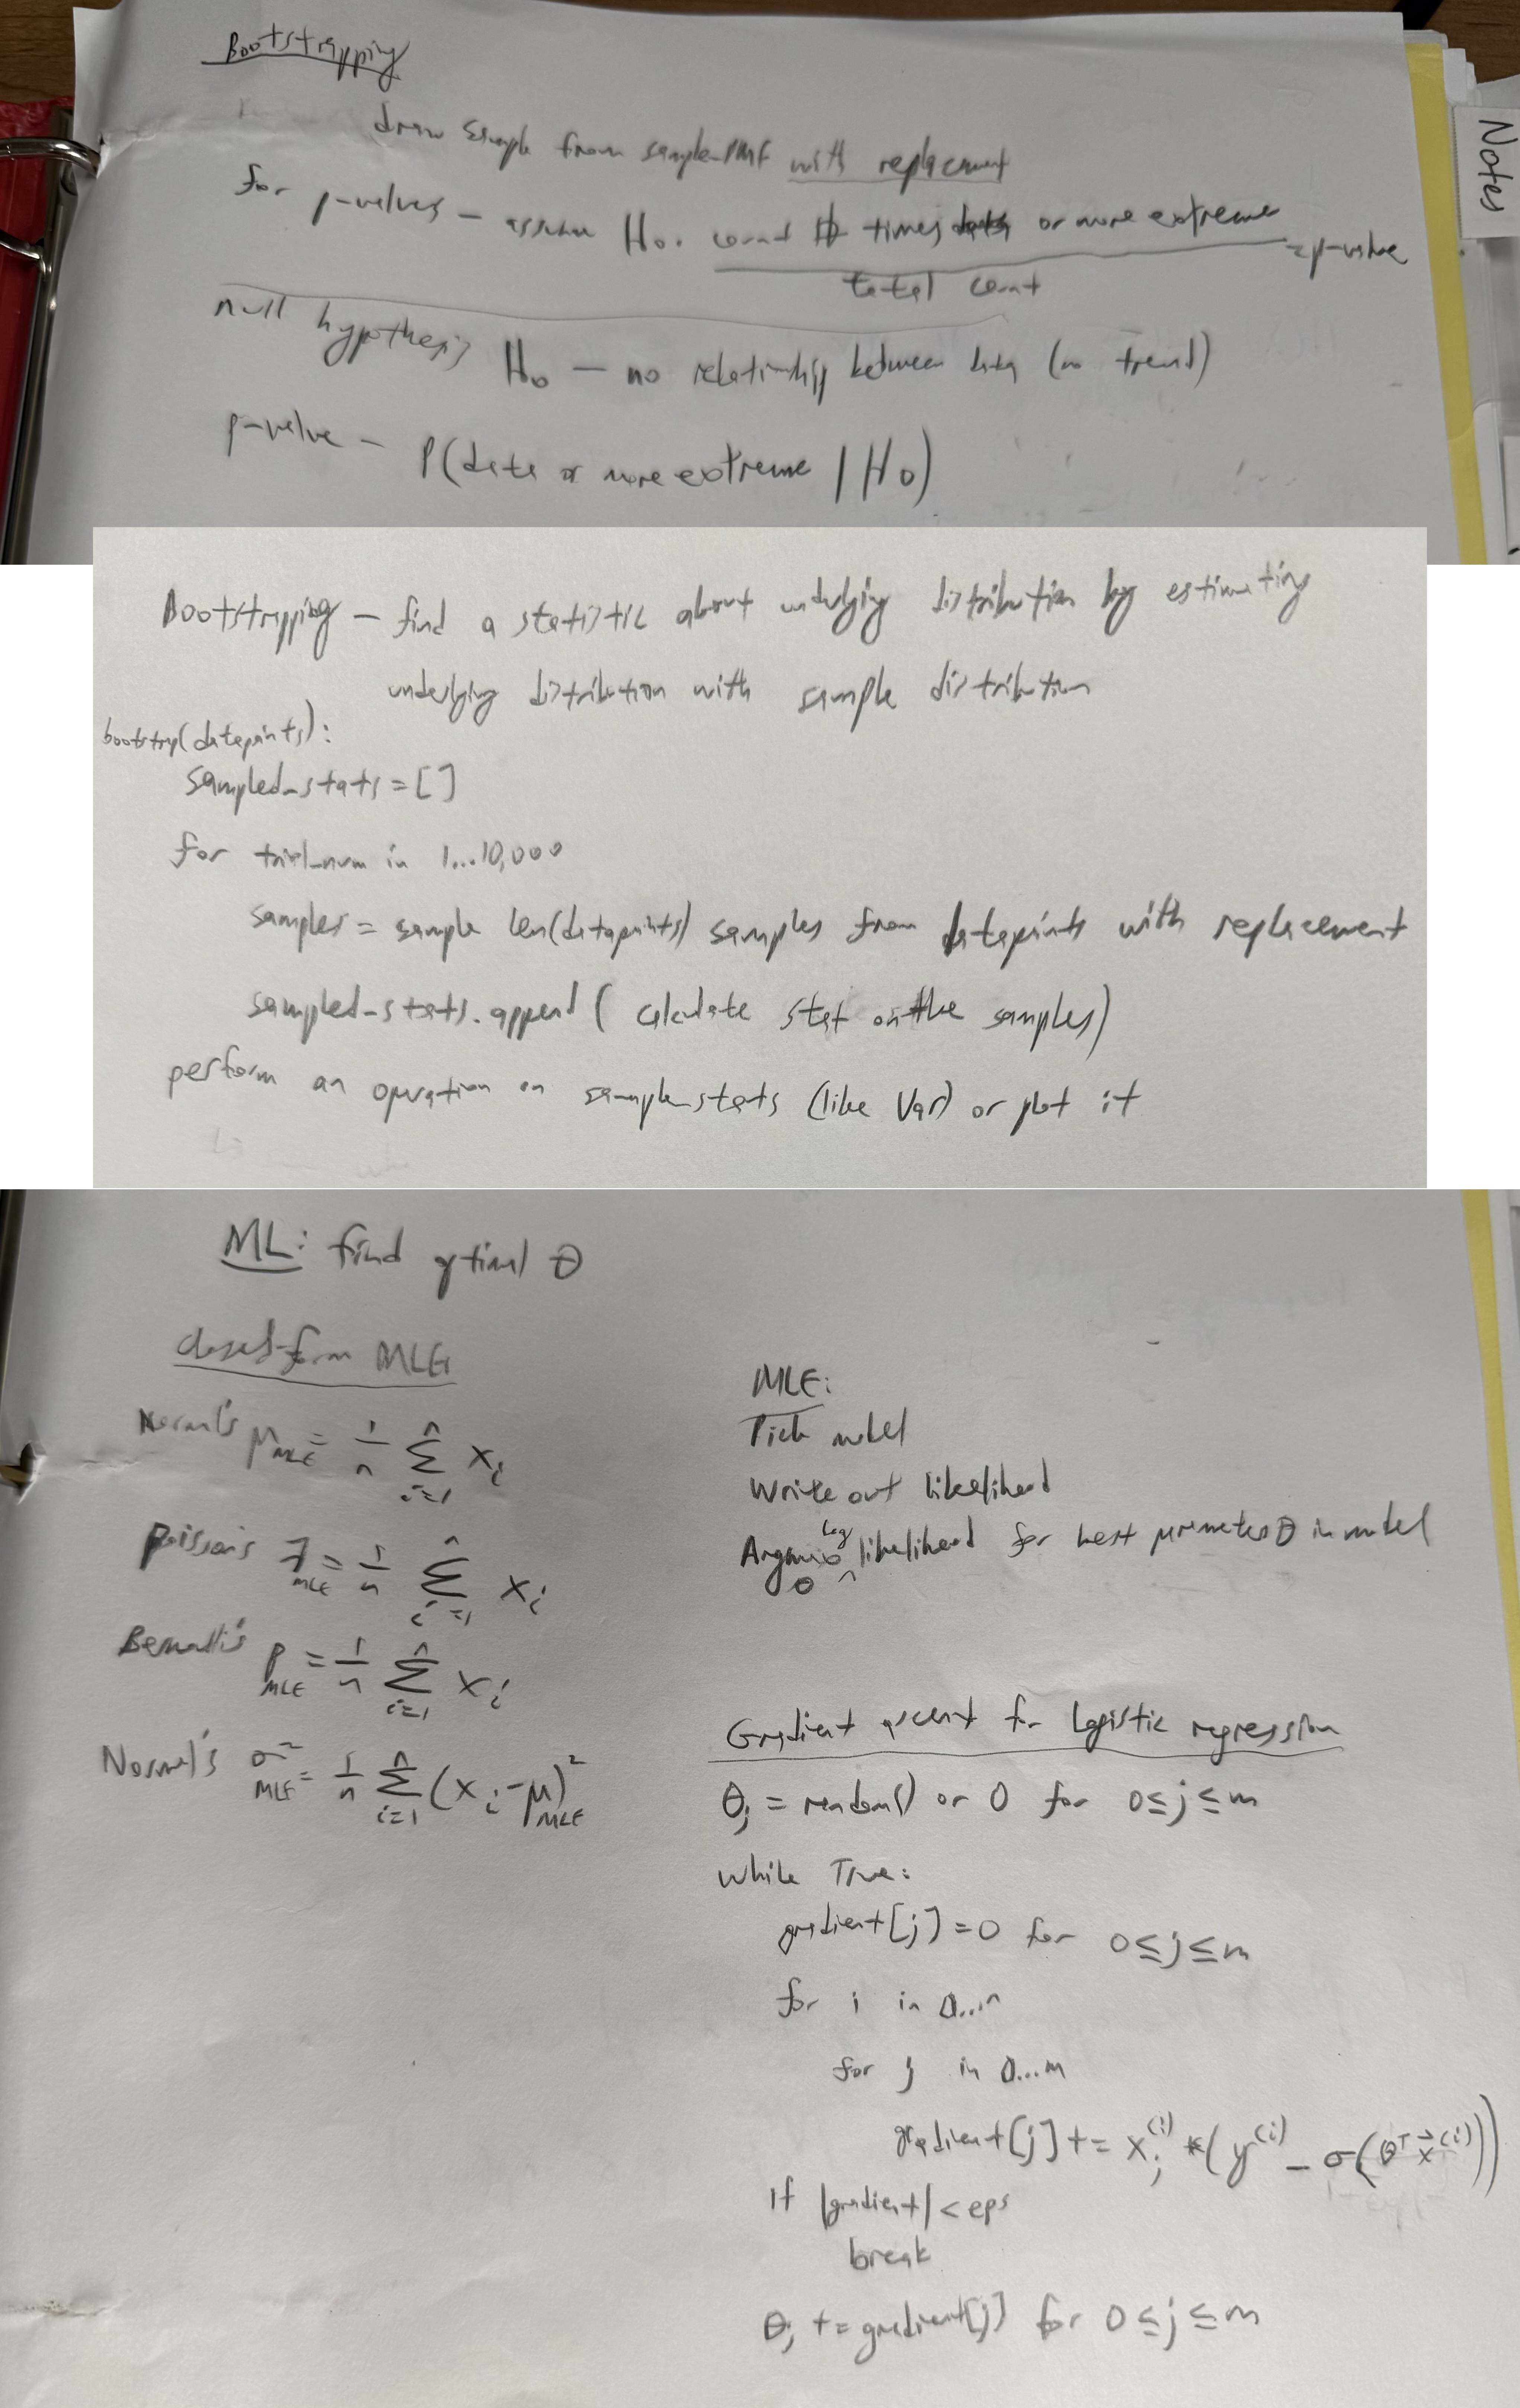 Bootstrapping
Notes
draw sample from sample-PMF with replacement
for p-values - assume H₀. count # times data or more extreme / total count = p-value
null hypothesis H₀ - no relationship between data (no trend)
p-value - P(data or more extreme | H₀)
Bootstrapping - find a statistic about underlying distribution by estimating
underlying distribution with sample distribution
bootstrap(datapoints):
sampled_stats = []
for trial_num in 1...10,000
samples = sample len(datapoints) samples from datapoints with replacement
sampled_stats.append( calculate stat on the samples)
perform an operation on sample_stats (like Var) or plot it
ML: find optimal θ
closed-form MLE
Normal's μ_MLE = 1/n Σ_{i=1}^n x_i
Poisson's λ_MLE = 1/n Σ_{i=1}^n x_i
Bernoulli's p_MLE = 1/n Σ_{i=1}^n x_i
Normal's σ²_MLE = 1/n Σ_{i=1}^n (x_i - μ_MLE)²
MLE:
Pick model
Write out likelihood
Argmax_θ log likelihood for best parameter θ in model
Gradient ascent for Logistic regression
θ_j = random() or 0 for 0≤j≤m
while True:
gradient[j] = 0 for 0≤j≤m
for i in 0...n
for j in 0...m
gradient[j] += x_j^(i) * (y^(i) - σ(θ^T x⃗^(i)))
If |gradient| < eps
break
θ_j += gradient[j] for 0≤j≤m